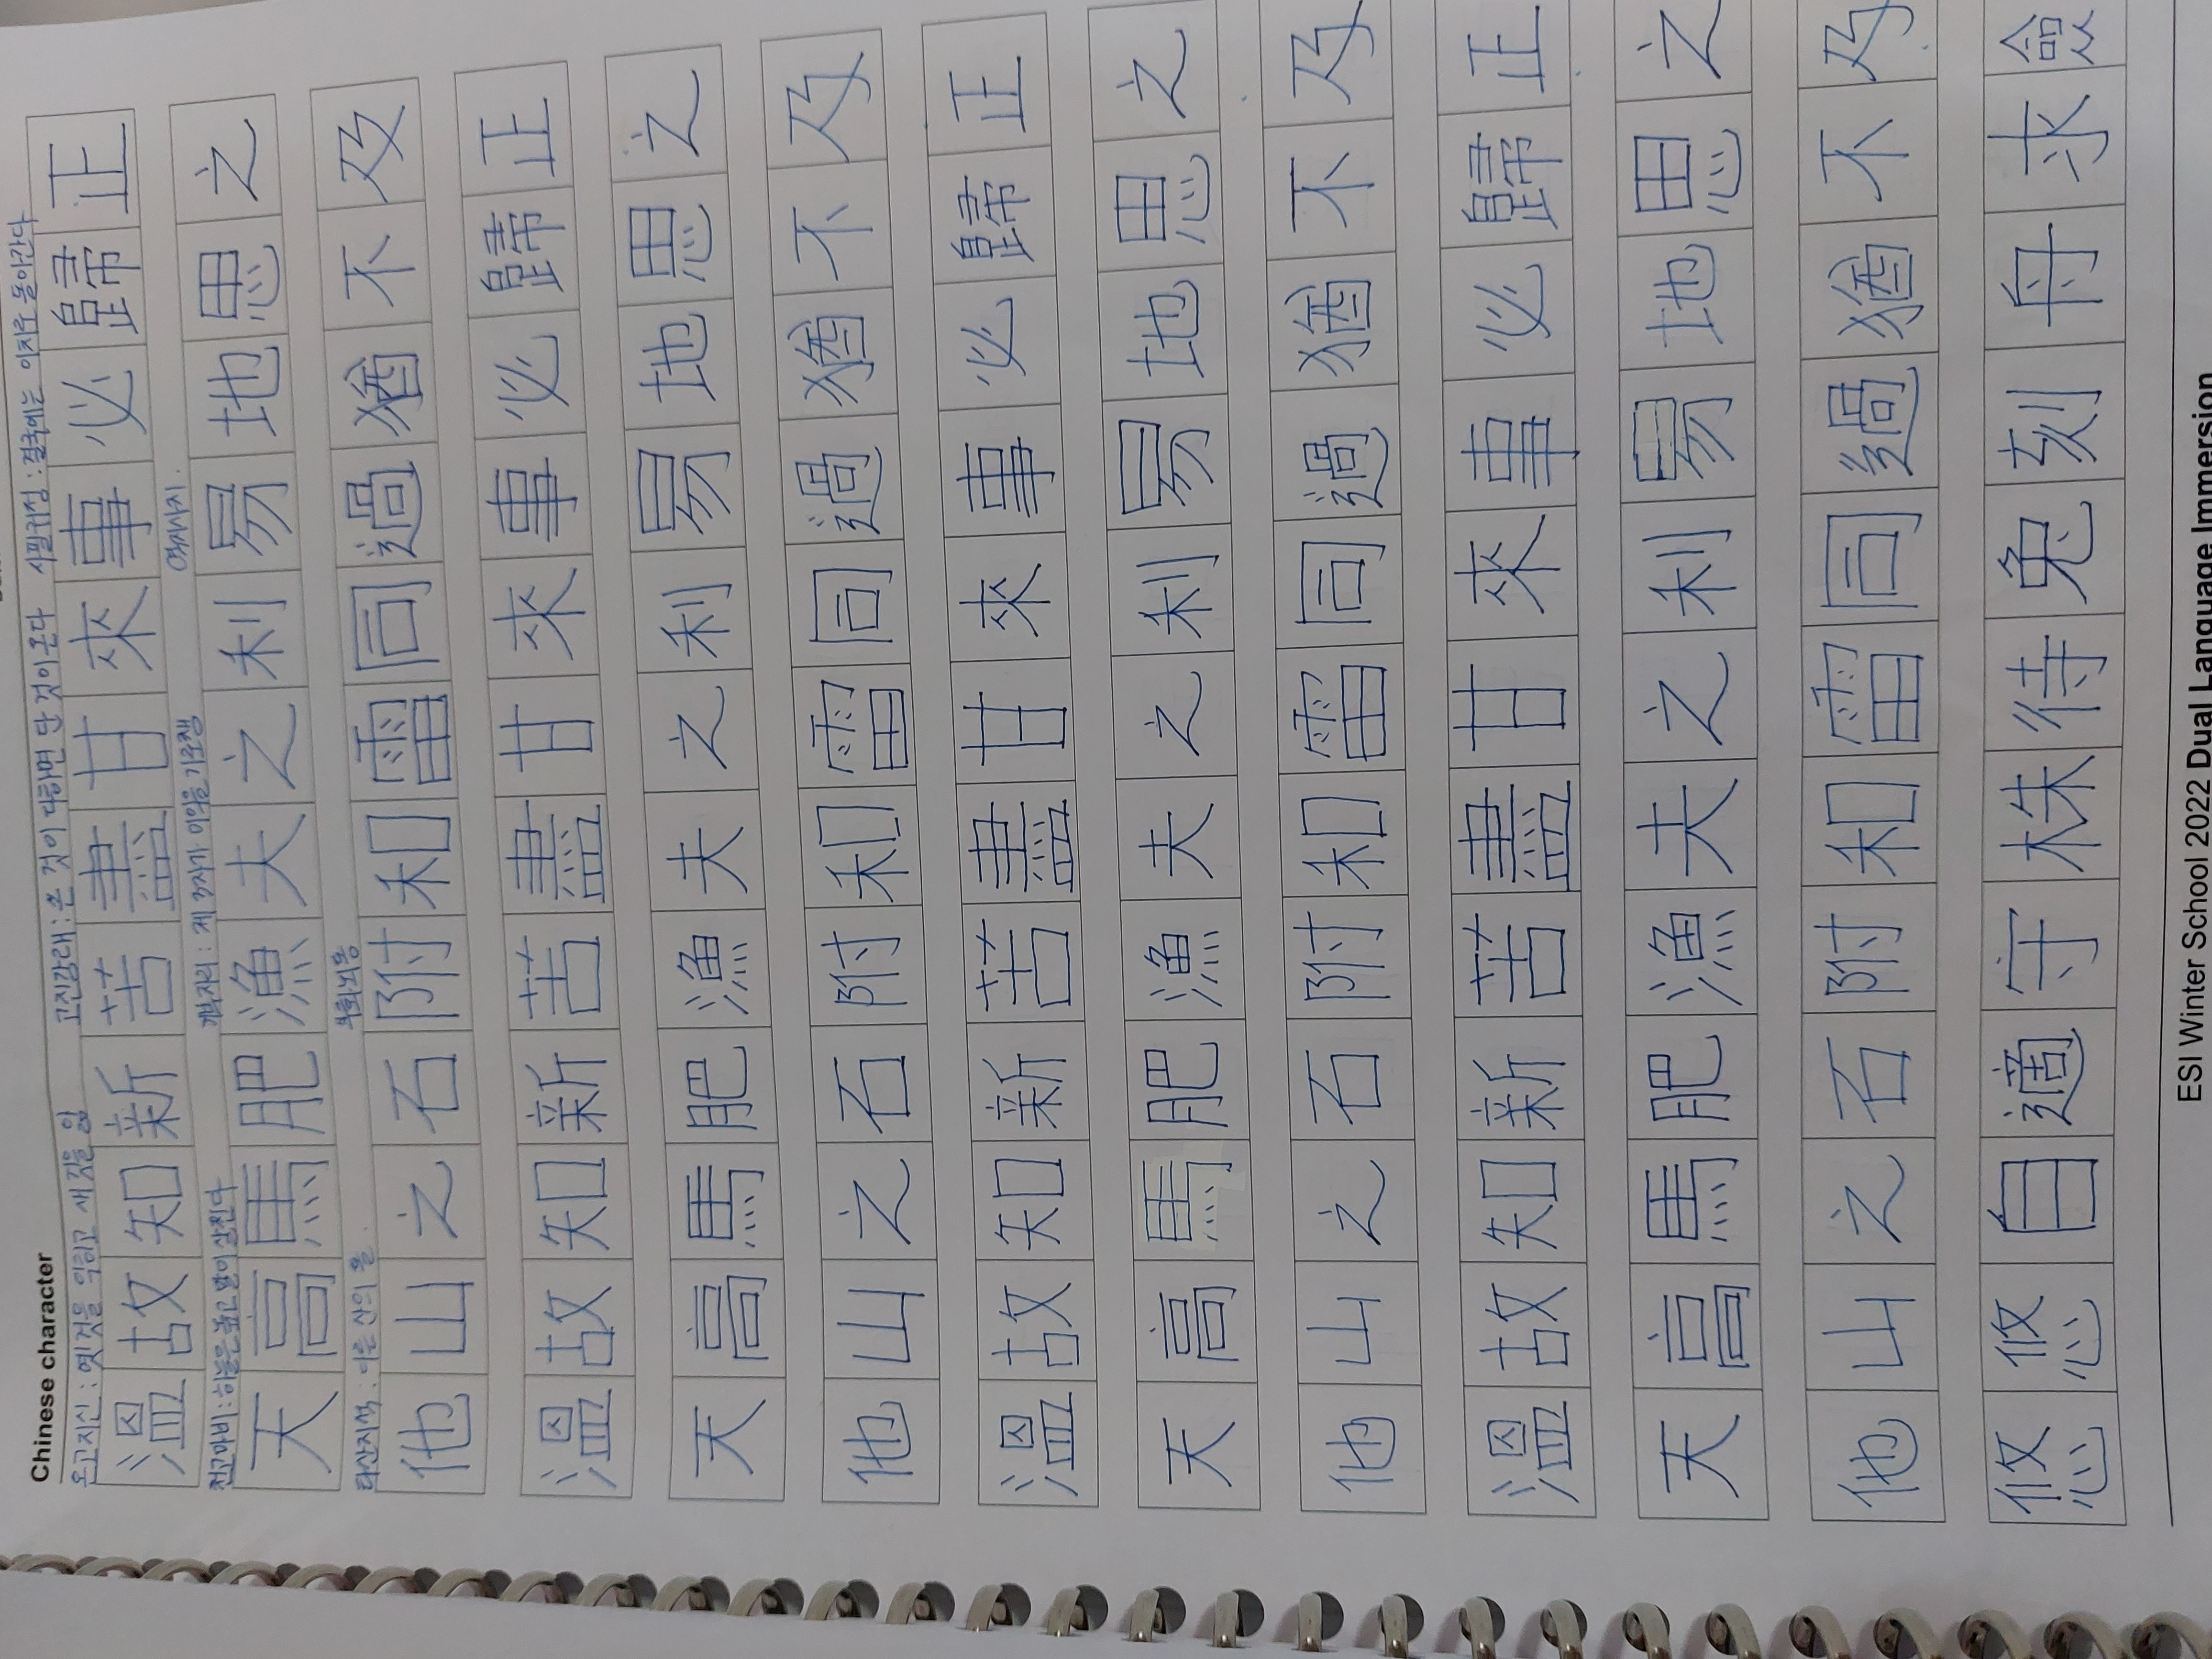 Chinese character
온고지신 : 옛것을 익히고 새것을 앎 고진감래 : 쓴 것이 다하면 단 것이 온다 사필귀정 : 결국에는 이치로 돌아간다
溫故知新苦盡甘來事必歸正
천고마비 : 하늘은 높고 말이 살찐다 : 제 3자가 이익을 가로챔 역지사지.
天高馬肥漁夫之利易地思之
타산지석 : 다른 산의 돌. 부화뇌동
他山之石附和雷同過猶不及
溫故知新苦盡甘來事必歸正
天高馬肥漁夫之利易地思之
他山之石附和雷同過猶不及
溫故知新苦盡甘來事必歸正
天高馬肥漁夫之利易地思之
他山之石附和雷同過猶不及
溫故知新苦盡甘來事必歸正
天高馬肥漁夫之利易地思之
他山之石附和雷同過猶不及
悠悠自適守株待兔刻舟求
ESI Winter School 2022 Dual Language Immersion